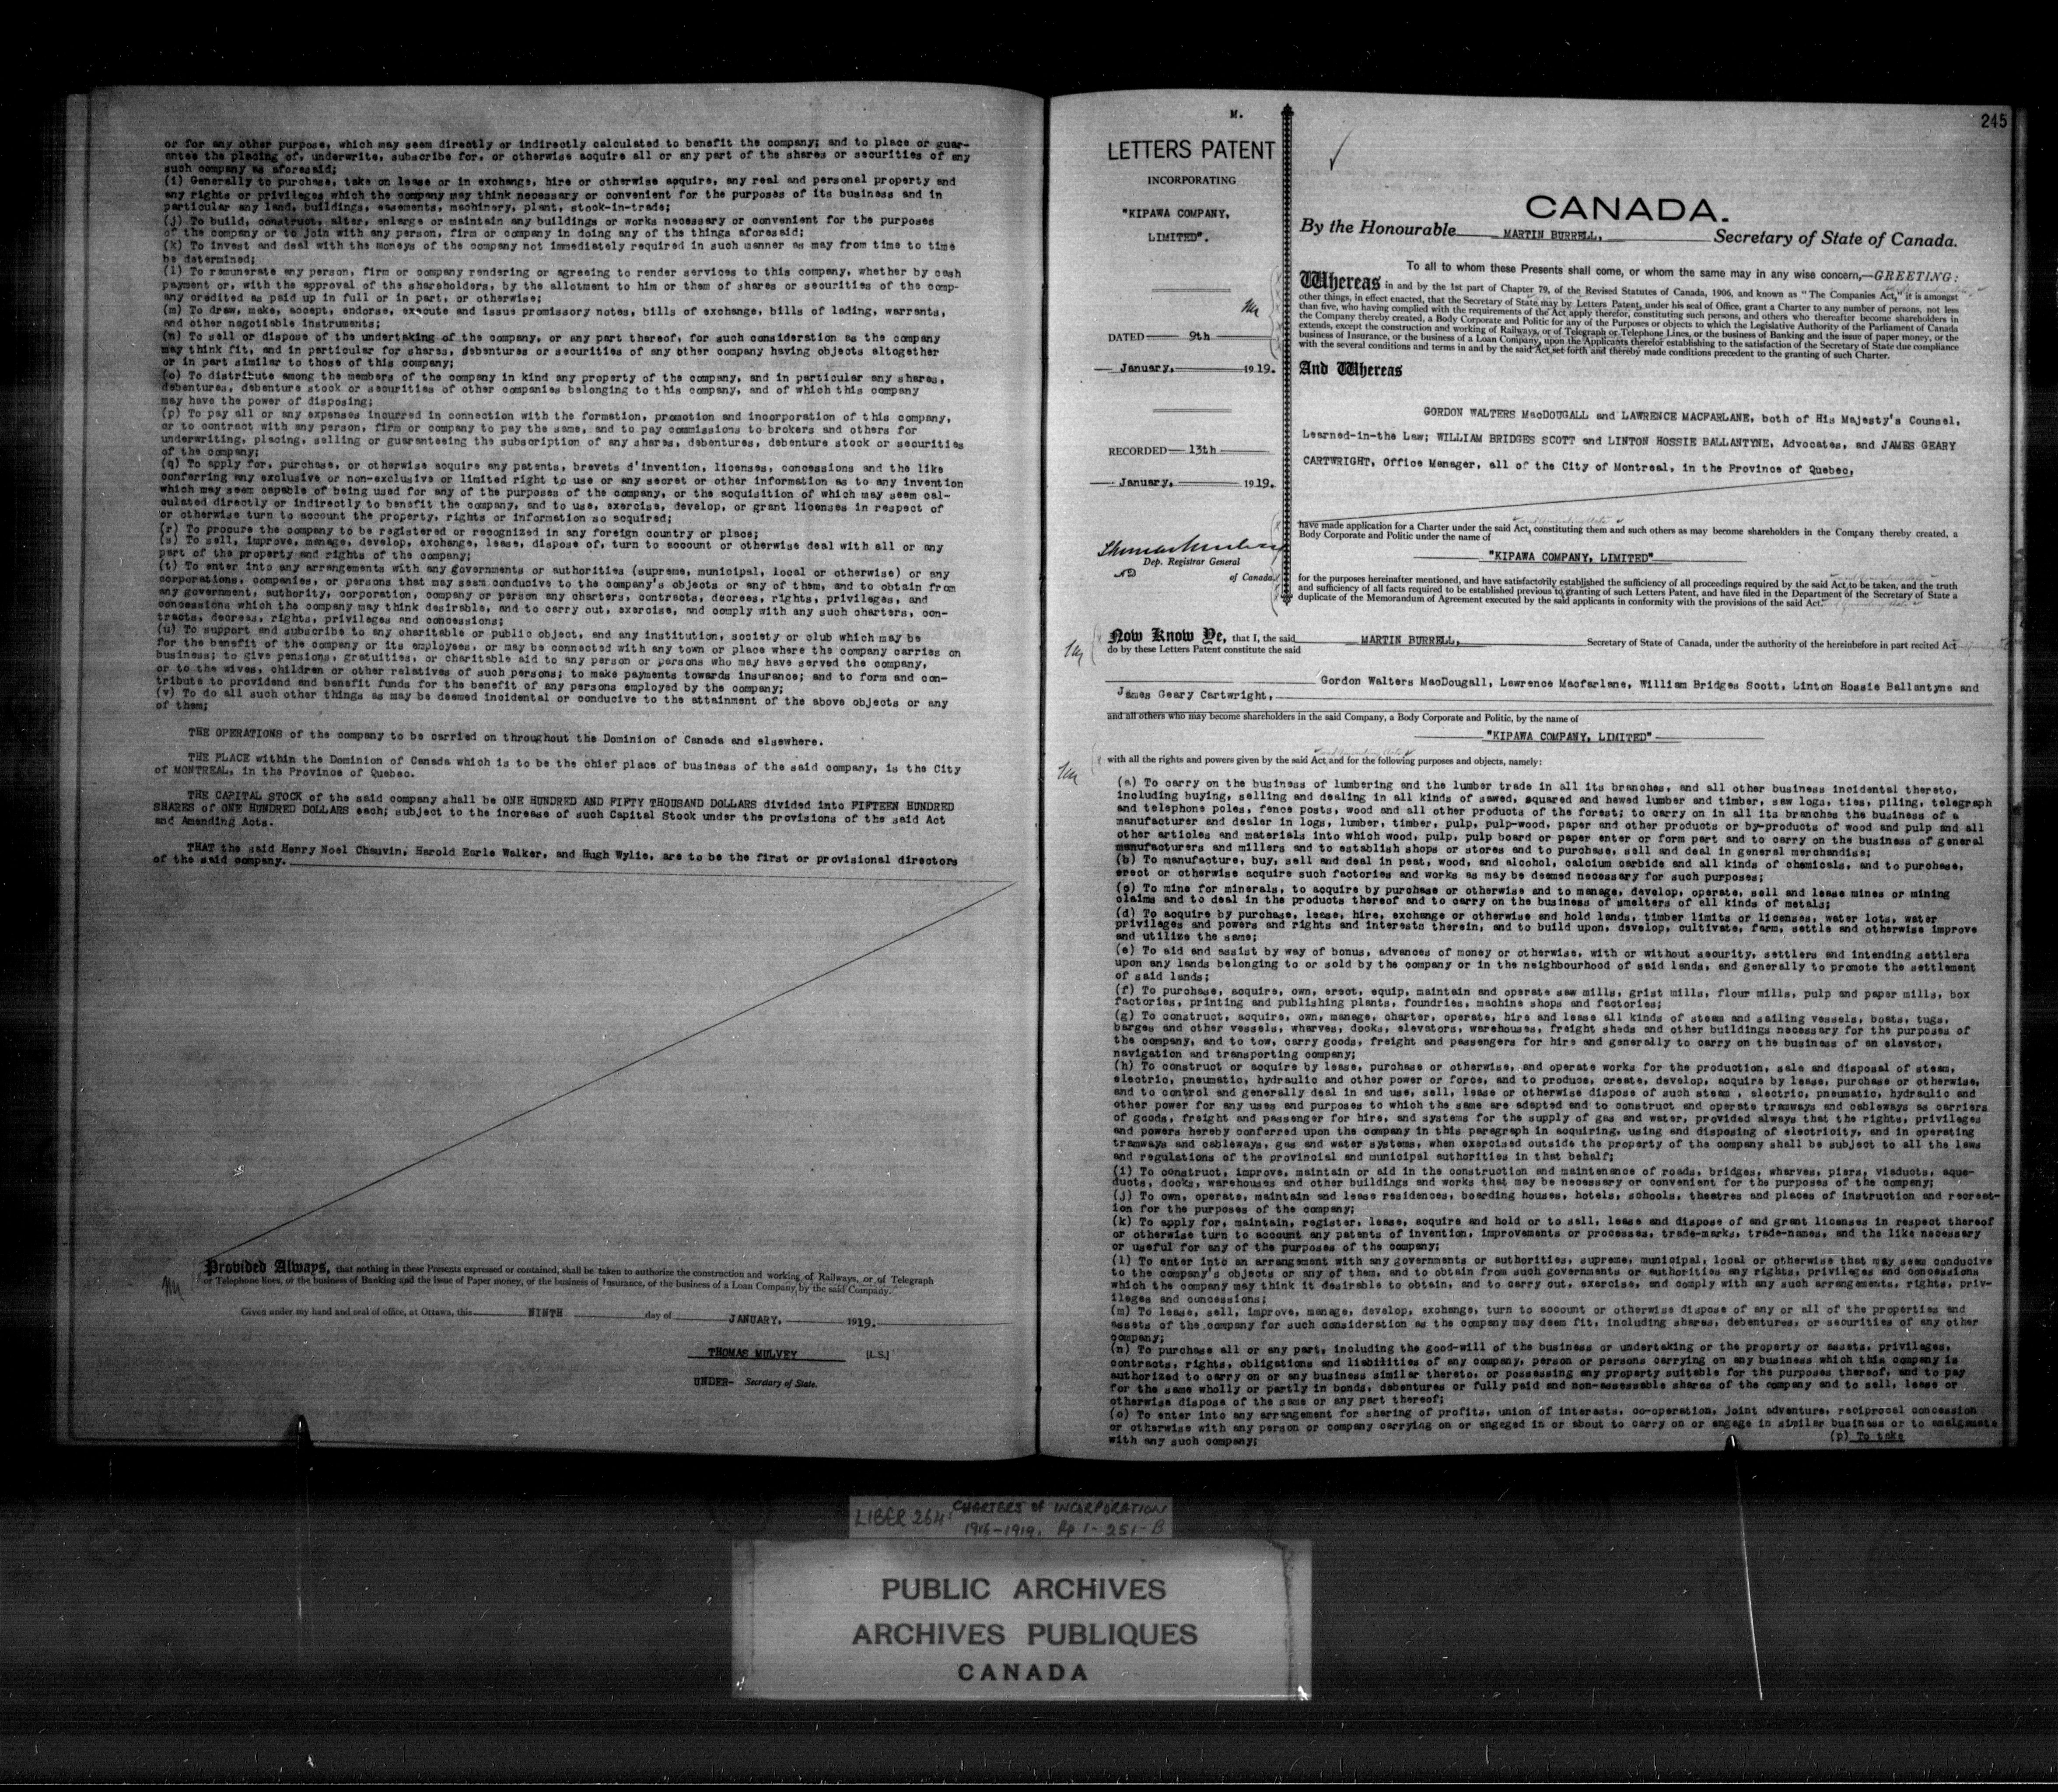 or for any other purpose, which may seem directly or indirectly calculated to benefit the company; and to place or guar-
antee the placing of, underwrite, subscribe for, or otherwise acquire all or any part of the shares or securities of any
such company as aforesaid;
(i) Generally to purchase, take on lease or in exchange, hire or otherwise acquire, any real and personal property and
any rights or privileges which the company may think necessary or convenient for the purposes of its business and in
particular any land, buildings, easements, machinery, plant, stock-in-trade;
(j) To build, construct, alter, enlarge or maintain any buildings or works necessary or convenient for the purposes
of the company or to join with any person, firm or company in doing any of the things aforesaid;
(k) To invest and deal with the moneys of the company not immediately required in such manner as may from time to time
be determined;
(l) To remunerate any person, firm or company rendering or agreeing to render services to this company, whether by cash
payment or, with the approval of the shareholders, by the allotment to him or them of shares or securities of the comp-
any credited as paid up in full or in part, or otherwise;
(m) To draw, make, accept, endorse, execute and issue promissory notes, bills of exchange, bills of lading, warrants,
and other negotiable instruments;
(n) To sell or dispose of the undertaking of the company, or any part thereof, for such consideration as the company
may think fit, and in particular for shares, debentures or securities of any other company having objects altogether
or in part similar to those of this company;
(o) To distribute among the members of the company in kind any property of the company, and in particular any shares,
debentures, debenture stock or securities of other companies belonging to this company, and of which this company
may have the power of disposing;
(p) To pay all or any expenses incurred in connection with the formation, promotion and incorporation of this company,
or to contract with any person, firm or company to pay the same, and to pay commissions to brokers and others for
underwriting, placing, selling or guaranteeing the subscription of any shares, debentures, debenture stock or securities
of the company;
(q) To apply for, purchase, or otherwise acquire any patents, brevets d'invention, licenses, concessions and the like
conferring any exclusive or non-exclusive or limited right to use or any secret or other information as to any invention
which may seem capable of being used for any of the purposes of the company, or the acquisition of which may seem cal-
culated directly or indirectly to benefit the company, and to use, exercise, develop, or grant licenses in respect of
or otherwise turn to account the property, rights or information so acquired;
(r) To procure the company to be registered or recognized in any foreign country or place;
(s) To sell, improve, manage, develop, exchange, lease, dispose of, turn to account or otherwise deal with all or any
part of the property and rights of the company;
(t) To enter into any arrangements with any governments or authorities (supreme, municipal, local or otherwise) or any
corporations, companies, or persons that may seem conducive to the company's objects or any of them, and to obtain from
any government, authority, corporation, company or person any charters, contracts, decrees, rights, privileges, and
concessions which the company may think desirable, and to carry out, exercise, and comply with any such charters, con-
tracts, decrees, rights, privileges and concessions;
(u) To support and subscribe to any charitable or public object, and any institution, society or club which may be
for the benefit of the company or its employees, or may be connected with any town or place where the company carries on
business; to give pensions, gratuities, or charitable aid to any person or persons who may have served the company,
or to the wives, children or other relatives of such persons; to make payments towards insurance; and to form and con-
tribute to providend and benefit funds for the benefit of any persons employed by the company;
(v) To do all such other things as may be deemed incidental or conducive to the attainment of the above objects or any
of them;
THE OPERATIONS of the company to be carried on throughout the Dominion of Canada and elsewhere.
THE PLACE within the Dominion of Canada which is to be the chief place of business of the said company, is the City
of MONTREAL, in the Province of Quebec.
THE CAPITAL STOCK of the said company shall be ONE HUNDRED AND FIFTY THOUSAND DOLLARS divided into FIFTEEN HUNDRED
SHARES of ONE HUNDRED DOLLARS each; subject to the increase of such Capital Stock under the provisions of the said Act
and Amending Acts.
THAT the said Henry Noel Chauvin, Harold Earle Walker, and Hugh Wylie, are to be the first or provisional directors
of the said company.
Provided Always, that nothing in these Presents expressed or contained, shall be taken to authorize the construction and working of Railways, or of Telegraph
or Telephone lines, or the business of Banking and the issue of Paper money, or the business of Insurance, or the business of a Loan Company by the said Company.
Given under my hand and seal of office, at Ottawa, this NINTH day of JANUARY, 1919.
THOMAS MULVEY [L.S.]
UNDER- Secretary of State.
M.
245
LETTERS PATENT
INCORPORATING
"KIPAWA COMPANY,
LIMITED".
DATED 9th
January, 1919.
RECORDED 13th
January, 1919.
Dep. Registrar General
of Canada
CANADA.
By the Honourable MARTIN BURRELL, Secretary of State of Canada.
To all to whom these Presents shall come, or whom the same may in any wise concern,—GREETING:
Whereas in and by the 1st part of Chapter 79, of the Revised Statutes of Canada, 1906, and known as "The Companies Act," it is amongst
other things, in effect enacted, that the Secretary of State may by Letters Patent, under his seal of Office, grant a Charter to any number of persons, not less
than five, who having complied with the requirements of the Act apply therefor, constituting such persons, and others who thereafter become shareholders in
the Company thereby created, a Body Corporate and Politic for any of the Purposes or objects to which the Legislative Authority of the Parliament of Canada
extends, except the construction and working of Railways, or of Telegraph or Telephone Lines, or the business of Banking and the issue of paper money, or the
business of Insurance, or the business of a Loan Company, upon the Applicants therefor establishing to the satisfaction of the Secretary of State due compliance
with the several conditions and terms in and by the said Act set forth and thereby made conditions precedent to the granting of such Charter.
And Whereas
GORDON WALTERS MacDOUGALL and LAWRENCE MACFARLANE, both of His Majesty's Counsel,
Learned-in-the Law; WILLIAM BRIDGES SCOTT and LINTON HOSSIE BALLANTYNE, Advocates, and JAMES GEARY
CARTWRIGHT, Office Manager, all of the City of Montreal, in the Province of Quebec,
have made application for a Charter under the said Act, constituting them and such others as may become shareholders in the Company thereby created, a
Body Corporate and Politic under the name of
"KIPAWA COMPANY, LIMITED"
for the purposes hereinafter mentioned, and have satisfactorily established the sufficiency of all proceedings required by the said Act to be taken, and the truth
and sufficiency of all facts required to be established previous to granting of such Letters Patent, and have filed in the Department of the Secretary of State a
duplicate of the Memorandum of Agreement executed by the said applicants in conformity with the provisions of the said Act.
Now Know Ye, that I, the said MARTIN BURRELL, Secretary of State of Canada, under the authority of the hereinbefore in part recited Act
do by these Letters Patent constitute the said
Gordon Walters MacDougall, Lawrence Macfarlane, William Bridges Scott, Linton Hossie Ballantyne and
James Geary Cartwright,
and all others who may become shareholders in the said Company, a Body Corporate and Politic, by the name of
"KIPAWA COMPANY, LIMITED"
with all the rights and powers given by the said Act and for the following purposes and objects, namely:
(a) To carry on the business of lumbering and the lumber trade in all its branches, and all other business incidental thereto,
including buying, selling and dealing in all kinds of sawed, squared and hewed lumber and timber, saw logs, ties, piling, telegraph
and telephone poles, fence posts, wood and all other products of the forest; to carry on in all its branches the business of a
manufacturer and dealer in logs, lumber, timber, pulp, pulp-wood, paper and other products or by-products of wood and pulp and all
other articles and materials into which wood, pulp, pulp board or paper enter or form part and to carry on the business of general
manufacturers and millers and to establish shops or stores and to purchase, sell and deal in general merchandise;
(b) To manufacture, buy, sell and deal in peat, wood, and alcohol, calcium carbide and all kinds of chemicals, and to purchase,
erect or otherwise acquire such factories and works as may be deemed necessary for such purposes;
(c) To mine for minerals, to acquire by purchase or otherwise and to manage, develop, operate, sell and lease mines or mining
claims and to deal in the products thereof and to carry on the business of smelters of all kinds of metals;
(d) To acquire by purchase, lease, hire, exchange or otherwise and hold lands, timber limits or licenses, water lots, water
privileges and powers and rights and interests therein, and to build upon, develop, cultivate, farm, settle and otherwise improve
and utilize the same;
(e) To aid and assist by way of bonus, advances of money or otherwise, with or without security, settlers and intending settlers
upon any lands belonging to or sold by the company or in the neighbourhood of said lands, and generally to promote the settlement
of said lands;
(f) To purchase, acquire, own, erect, equip, maintain and operate saw mills, grist mills, flour mills, pulp and paper mills, box
factories, printing and publishing plants, foundries, machine shops and factories;
(g) To construct, acquire, own, manage, charter, operate, hire and lease all kinds of steam and sailing vessels, boats, tugs,
barges and other vessels, wharves, docks, elevators, warehouses, freight sheds and other buildings necessary for the purposes of
the company, and to tow, carry goods, freight and passengers for hire and generally to carry on the business of an elevator,
navigation and transporting company;
(h) To construct or acquire by lease, purchase or otherwise, and operate works for the production, sale and disposal of steam,
electric, pneumatic, hydraulic and other power or force, and to produce, create, develop, acquire by lease, purchase or otherwise,
and to control and generally deal in and use, sell, lease or otherwise dispose of such steam , electric, pneumatic, hydraulic and
other power for any uses and purposes to which the same are adapted and to construct and operate tramways and cableways as carriers
of goods, freight and passenger for hire, and systems for the supply of gas and water, provided always that the rights, privileges
and powers hereby conferred upon the company in this paragraph in acquiring, using and disposing of electricity, and in operating
tramways and cableways, gas and water systems, when exercised outside the property of the company shall be subject to all the laws
and regulations of the provincial and municipal authorities in that behalf;
(i) To construct, improve, maintain or aid in the construction and maintenance of roads, bridges, wharves, piers, viaducts, aque-
ducts, docks, warehouses and other buildings and works that may be necessary or convenient for the purposes of the company;
(j) To own, operate, maintain and lease residences, boarding houses, hotels, schools, theatres and places of instruction and recreat-
ion for the purposes of the company;
(k) To apply for, maintain, register, lease, acquire and hold or to sell, lease and dispose of and grant licenses in respect thereof
or otherwise turn to account any patents of invention, improvements or processes, trade-marks, trade-names, and the like necessary
or useful for any of the purposes of the company;
(l) To enter into an arrangement with any governments or authorities, supreme, municipal, local or otherwise that may seem conducive
to the company's objects or any of them, and to obtain from such governments or authorities any rights, privileges and concessions
which the company may think it desirable to obtain, and to carry out, exercise, and comply with any such arrangements, rights, priv-
ileges and concessions;
(m) To lease, sell, improve, manage, develop, exchange, turn to account or otherwise dispose of any or all of the properties and
assets of the company for such consideration as the company may deem fit, including shares, debentures, or securities of any other
company;
(n) To purchase all or any part, including the good-will of the business or undertaking or the property or assets, privileges,
contracts, rights, obligations and liabilities of any company, person or persons carrying on any business which this company is
authorized to carry on or any business similar thereto, or possessing any property suitable for the purposes thereof, and to pay
for the same wholly or partly in bonds, debentures or fully paid and non-assessable shares of the company and to sell, lease or
otherwise dispose of the same or any part thereof;
(o) To enter into any arrangement for sharing of profits, union of interests, co-operation, joint adventure, reciprocal concession
or otherwise with any person or company carrying on or engaged in or about to carry on or engage in similar business or to amalgamate
with any such company;
(p) To take
LIBER 264: CHARTERS of INCORPORATION
1916-1919. Pp 1-251-B
PUBLIC ARCHIVES
ARCHIVES PUBLIQUES
CANADA